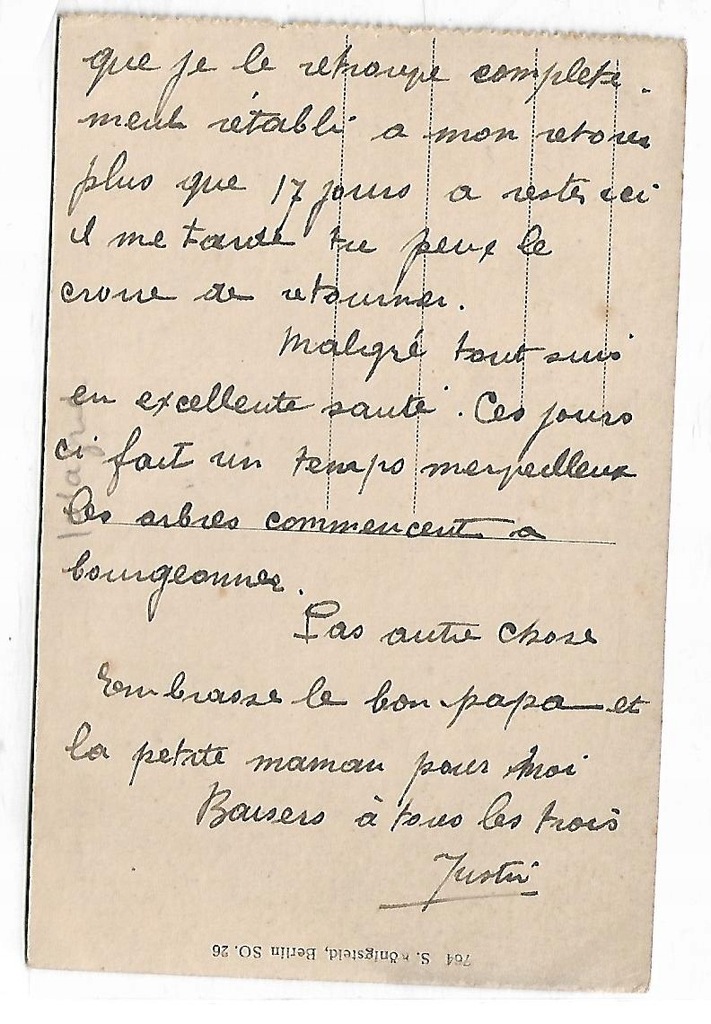 que je le retrouve complète-
ment rétabli a mon retour
plus que 17 jours a rester ici
il me tarde tu peux le
croire de retourner.
Malgré tout suis
en excellente santé. Ces jours
ci fait un temps merveilleux
les arbres commencent a
bourgeonner.
Pas autre chose
Embrasse le bon papa et
la petite maman pour moi
Baisers à tous les trois
Justin
764 S. Königsfeld, Berlin SO. 26